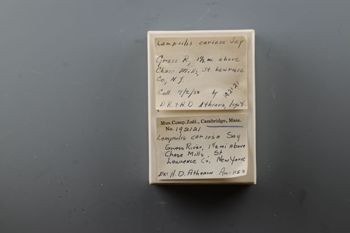 Lampsilis cariosa Say
Grass R., 1½ mi above
Chase Mills, St. Lawrence
Co., N.Y.
Coll. by
D.R. & H.D. Athearn
Mus. Comp. Zoöl., Cambridge, Mass.
No. 192121
Lampsilis cariosa Say
Grass River, 1½ mi above
Chase Mills, St
Lawrence Co, New York
Ex: H. D. Athearn